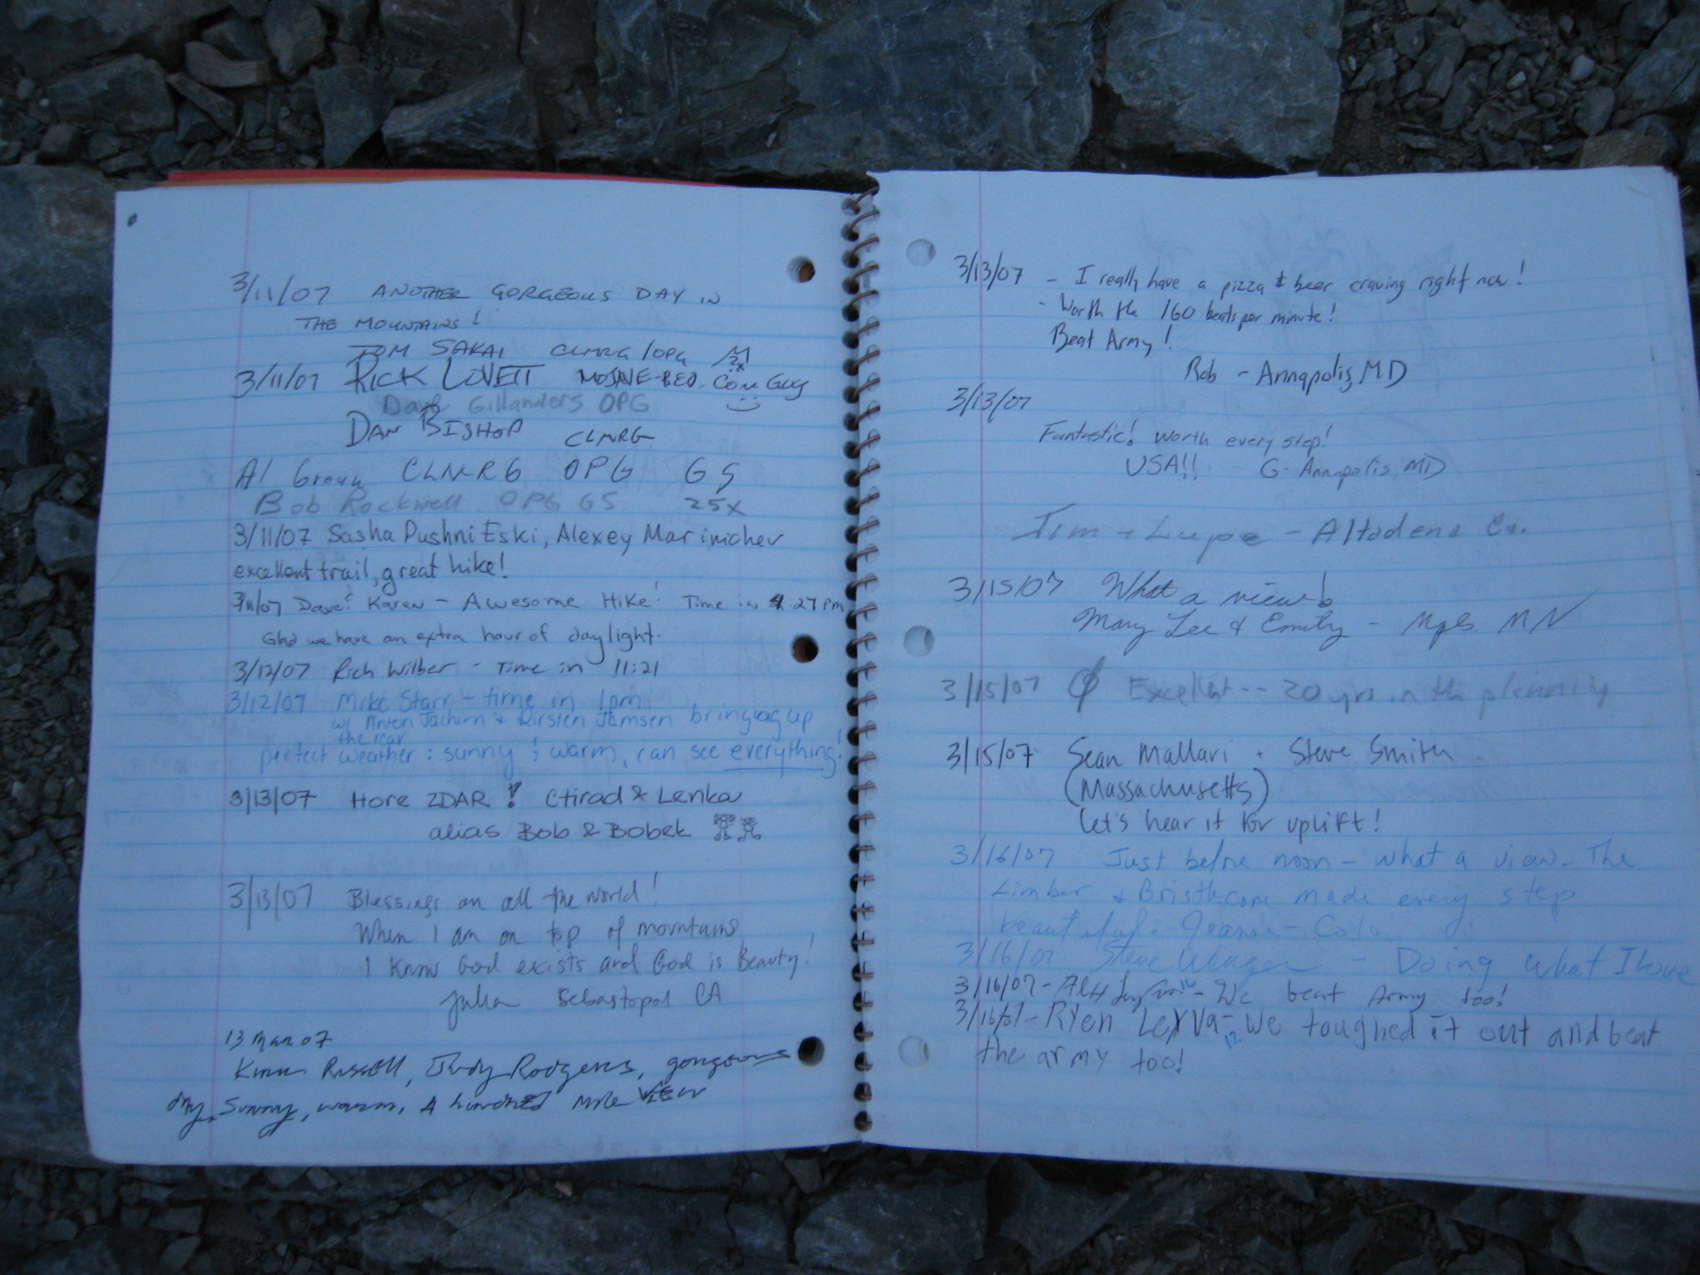 3/11/07 ANOTHER GORGEOUS DAY IN
THE MOUNTAINS!
TOM SAKAI CLMRG/OPG
3/11/07 RICK LOVETT MOJAVE-BED Com Guy
Gillanders OPG
DAN BISHOP CLMRG
Al Green CLMRG OPG GS
Bob Rockwell OPG GS 25x
3/11/07 Sasha Pushni Eski, Alexey Marinichev
excellent trail, great hike!
3/11/07 Dave & Karen - Awesome Hike! Time in 4:27 pm
Glad we have an extra hour of daylight.
3/12/07 Rich Wilber - Time in 11:21
3/12/07 Mike Starr - time in 1pm
w/ Anton Jachim + Kirsten Jamsen bringing up
the rear
perfect weather: sunny & warm, can see everything!
3/13/07 Hore ZDAR! Ctirad & Lenka
alias Bob & Bobek
3/13/07 Blessings on all the world!
When I am on top of mountains
I know God exists and God is Beauty!
Julia Sebastopol CA
13 Mar 07
Russell, Judy Rodgers, gorgeous
day, sunny, warm. A hundred mile view
3/13/07 - I really have a pizza & beer craving right now!
- Worth the 160 beats per minute!
Beat Army!
Rob - Annapolis, MD
3/13/07
Fantastic! Worth every step!
USA!! G. Annapolis, MD
Jim + Lupe - Altadena Ca.
3/15/07 What a view!
Mary Lee & Emily - Mpls. MN
3/15/07 Excellent -- 20 yrs. in the planning
3/15/07 Sean Mallari + Steve Smith
(Massachusetts)
Let's hear it for uplift!
3/16/07 Just before noon - what a view. The
Limber & Bristlecone made every step
beautiful. Jeanne - Colo.
3/16/07 Steve - Doing what I love
3/16/07 - We beat Army too!
3/16/07 - Ryen Leyva - 12 We toughed it out and beat
the army too!